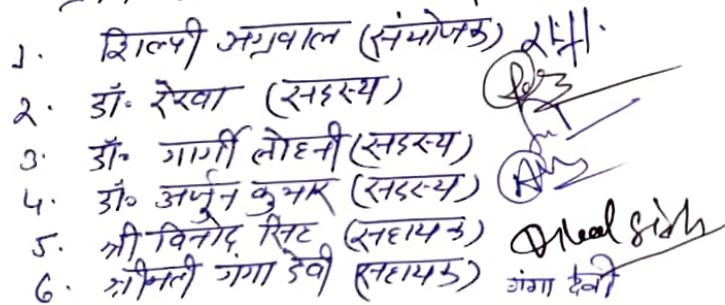 1. शिल्पी अग्रवाल (संयोजक)
2. डॉ. रेखा (सदस्य)
3. डॉ. गार्गी लोहनी (सदस्य)
4. डॉ. अर्जुन कुमार (सदस्य)
5. श्री विनोद सिंह (सहायक)
6. श्रीमती गंगा देवी (सहायक) गंगा देवी